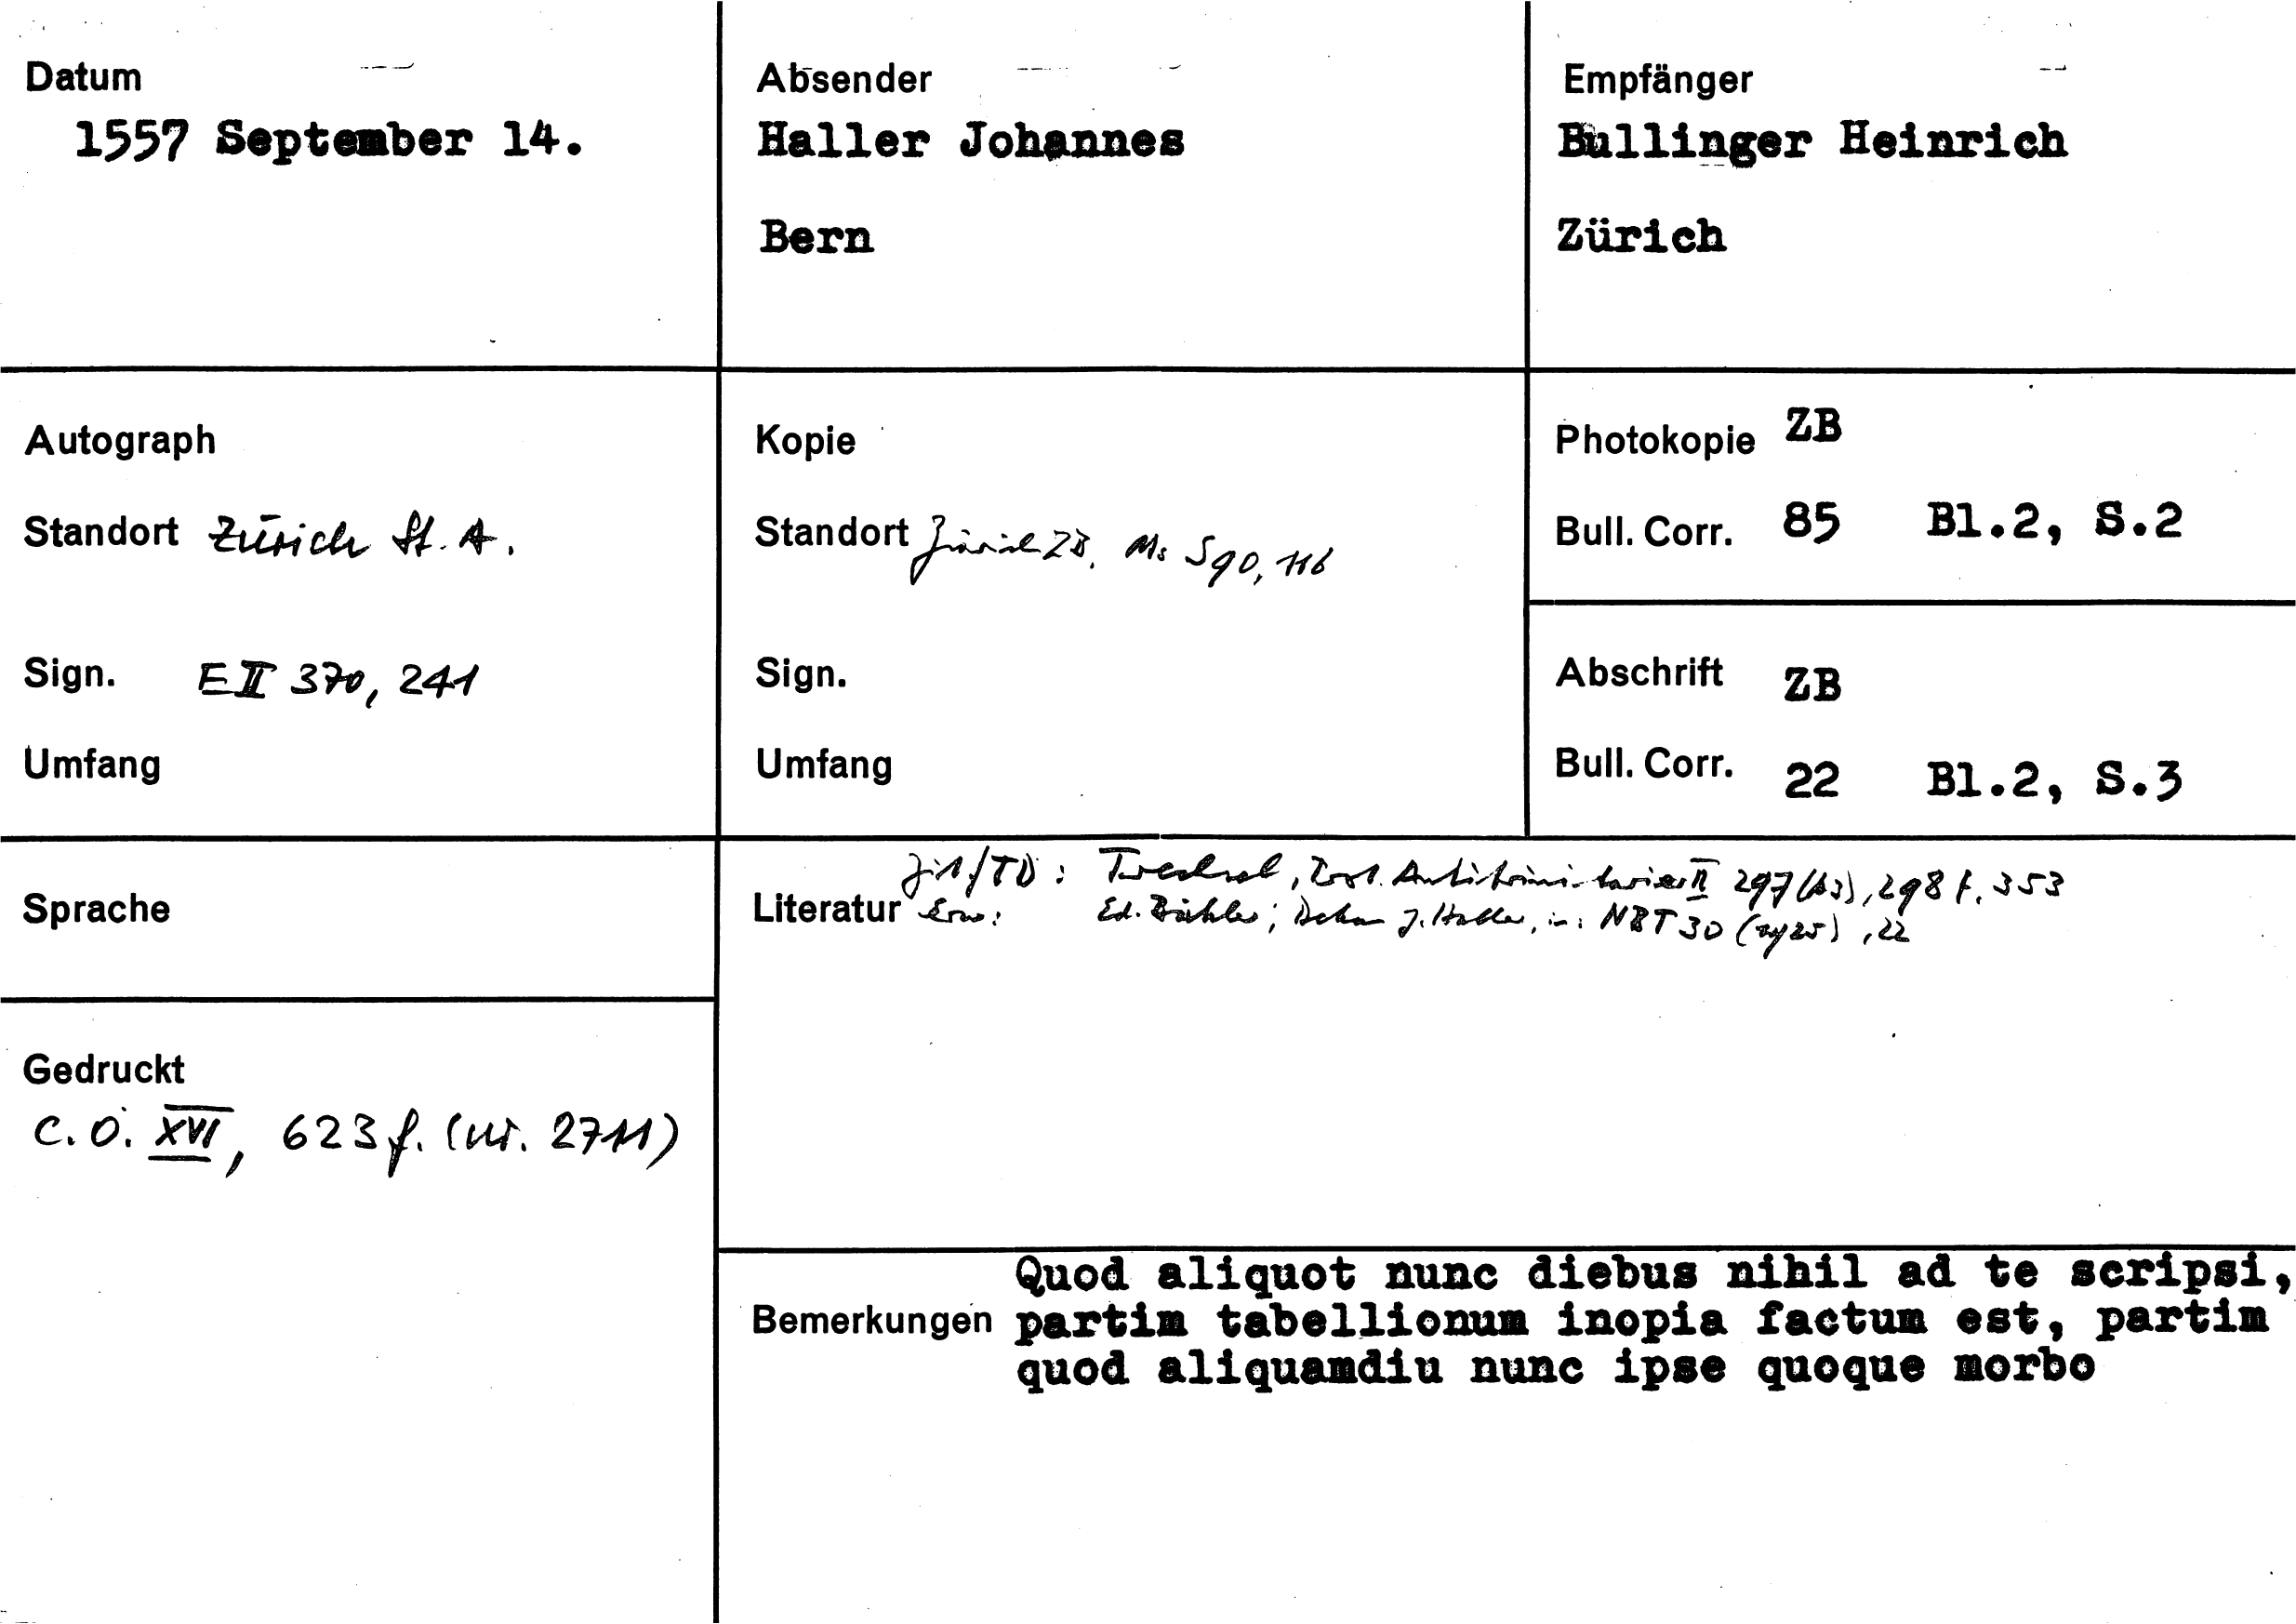 Datum
1557 September 14.
Absender
Haller Johannes
Bern
Empfänger
Bullinger Heinrich
Zürich
Autograph
Standort Zürich St. A.
Sign. E II 370, 241
Umfang
Kopie
Standort Zürich ZB, Ms S 90, 116
Sign.
Umfang
Photokopie ZB
Bull. Corr. 85 Bl.2, S.2
Abschrift ZB
Bull. Corr. 22 Bl.2, S.3
Sprache
Gedruckt
C.O. XVI, 623 f. (Nr. 2711)
Trechsel, Prot. Antitrinitarier II 297 (A3), 298 f. 353
Literatur Erw: Ed. Bähler; Dekan J. Haller, in: NBT 30 (1925), 22
Quod aliquot nunc diebus nihil ad te scripsi,
Bemerkungen partim tabellionum inopia factum est, partim
quod aliquamdiu nunc ipse quoque morbo